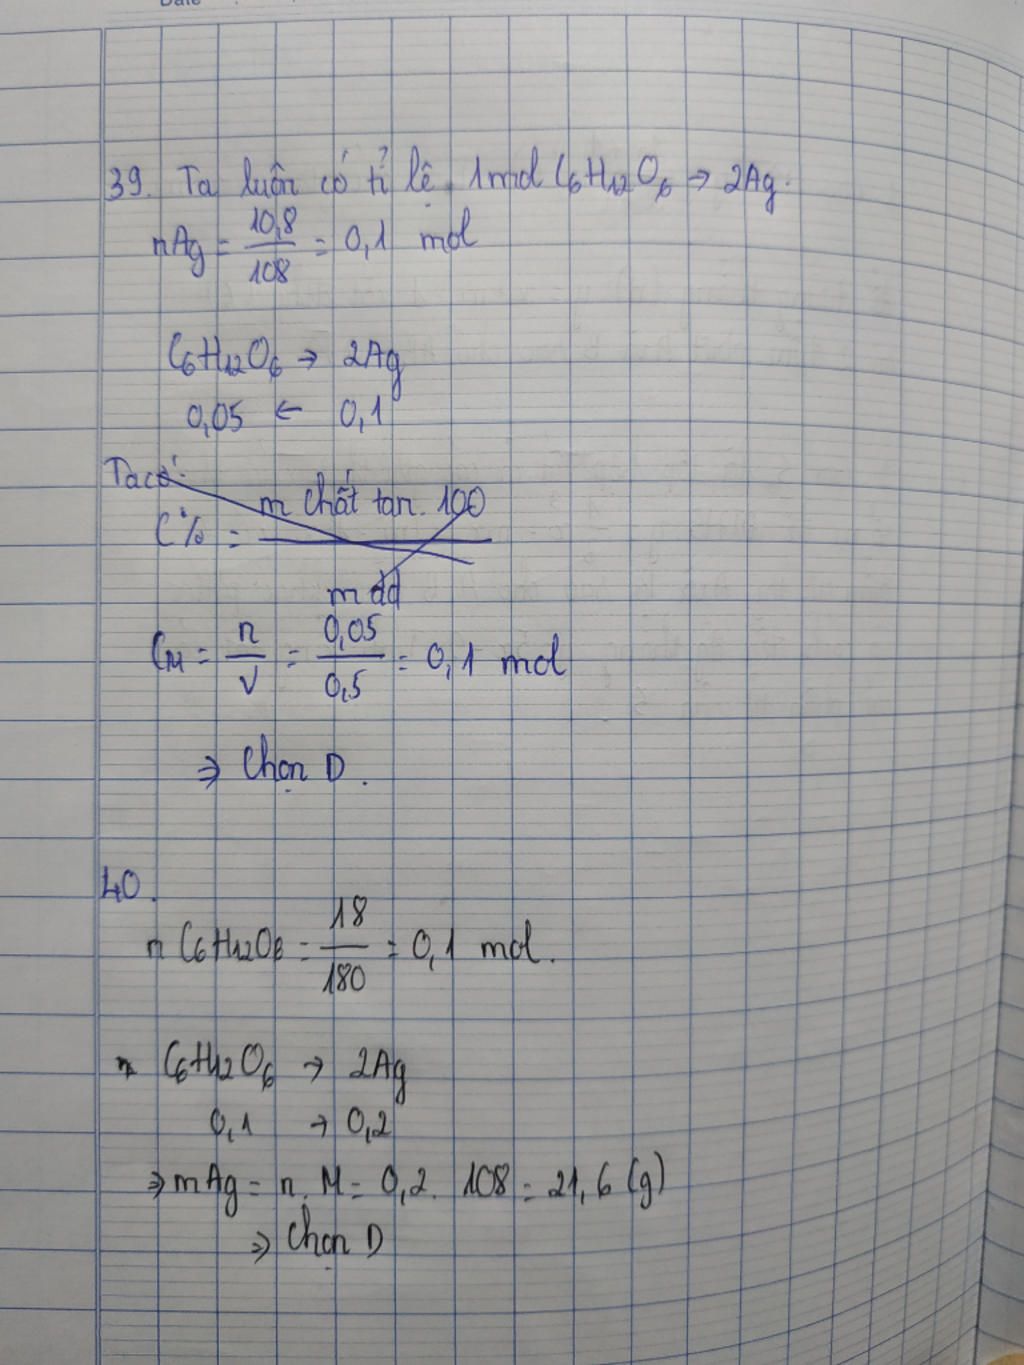 Date
39. Ta luôn có tỉ lệ 1mol C6H12O6 → 2Ag.
nAg = 10,8 / 108 = 0,1 mol
C6H12O6 → 2Ag
0,05 ← 0,1
Ta có:
C% = m chất tan. 100 / m dd
CM = n / V = 0,05 / 0,5 = 0,1 mol
⇒ Chọn D.
40.
n C6H12O6 = 18 / 180 = 0,1 mol.
C6H12O6 → 2Ag
0,1 → 0,2
⇒ mAg = n. M = 0,2. 108 = 21,6 (g)
⇒ Chọn D